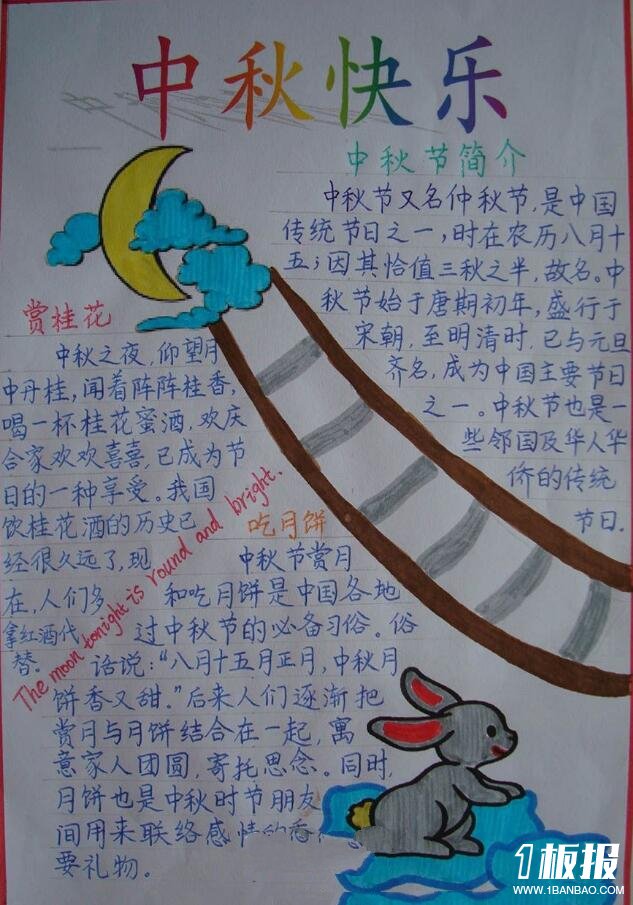 中秋快乐
中秋节简介
中秋节又名仲秋节,是中国
传统节日之一,时在农历八月十
五;因其恰值三秋之半,故名。中
秋节始于唐期初年,盛行于
宋朝,至明清时,已与元旦
齐名,成为中国主要节日
之一。中秋节也是一
些邻国及华人华
侨的传统
节日.
赏桂花
中秋之夜,仰望月
中丹桂,闻着阵阵桂香,
喝一杯桂花蜜酒,欢庆
合家欢欢喜喜,已成为节
日的一种享受。我国
饮桂花酒的历史已
经很久远了,现
在,人们多
拿红酒代
替。
The moon tonight is round and bright.
吃月饼
中秋节赏月
和吃月饼是中国各地
过中秋节的必备习俗。俗
话说:“八月十五月正月,中秋月
饼香又甜。”后来人们逐渐把
赏月与月饼结合在一起,寓
意家人团圆,寄托思念。同时,
月饼也是中秋时节朋友
间用来联络感情的
要礼物。
1板报
WWW.1BANBAO.COM